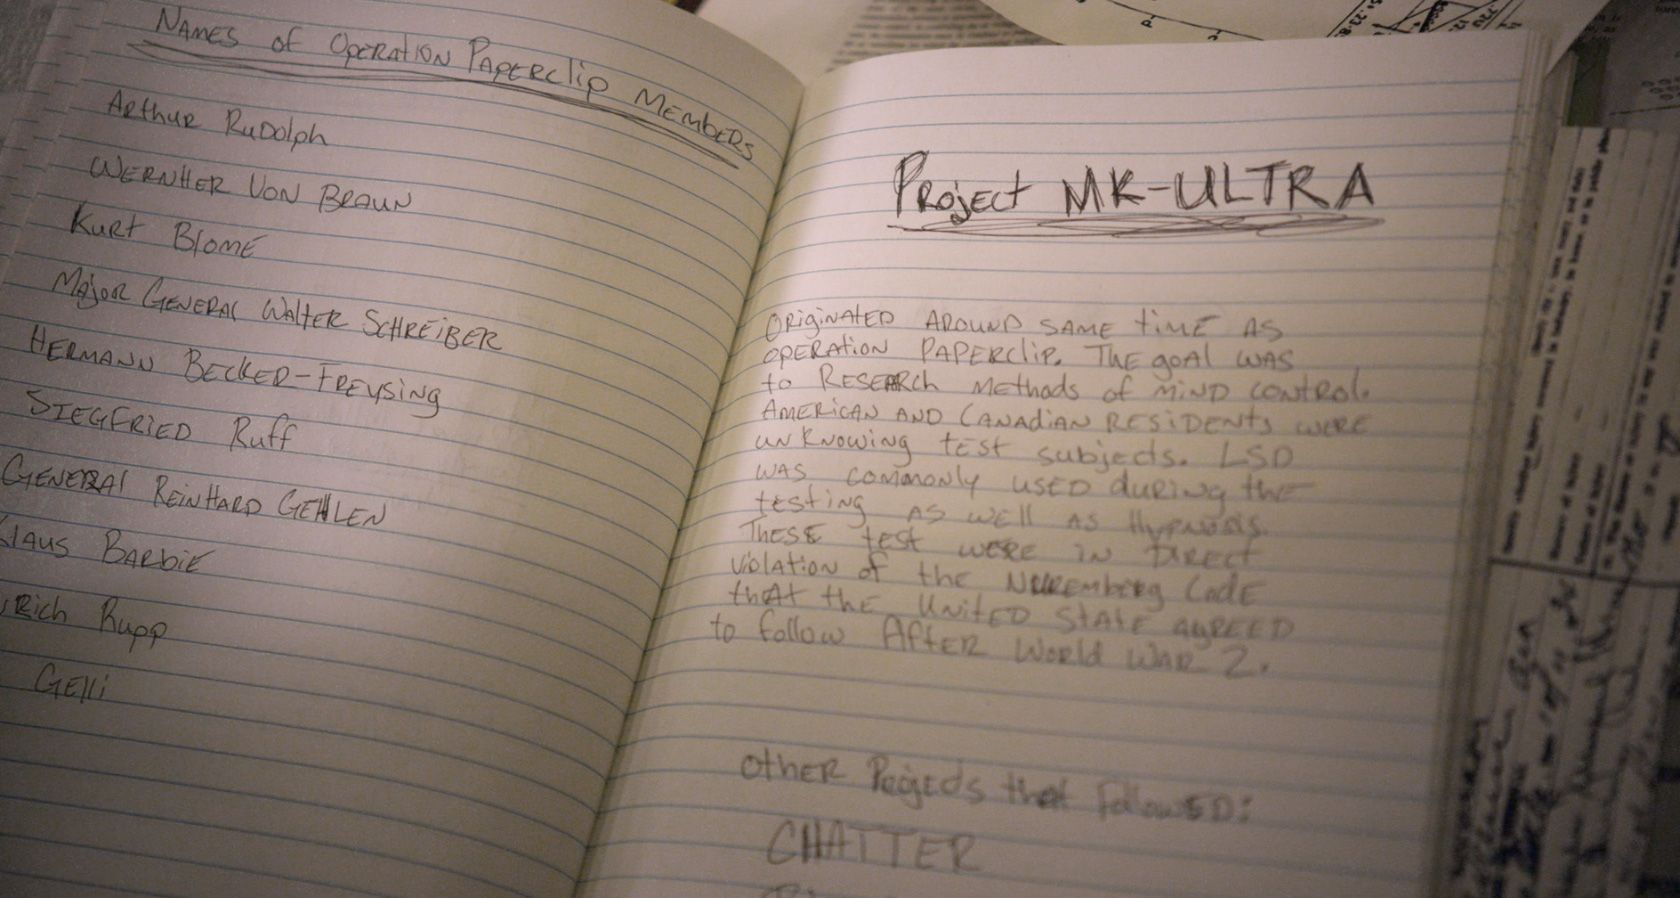 Names of Operation Paperclip Members
Arthur Rudolph
Wernher Von Braun
Kurt Blome
Major General Walter Schreiber
Hermann Becker-Freysing
Siegfried Ruff
General Reinhard Gehlen
Klaus Barbie
rich Rupp
Gelli
Project MK-ULTRA
Originated around same time as
operation Paperclip. The goal was
to Research methods of mind control.
American and Canadian residents were
unknowing test subjects. LSD
was commonly used during the
testing as well as Hypnosis.
These test were in direct
violation of the Nuremberg Code
that the United State agreed
to follow After World War 2.
Other Projects that followed:
CHATTER